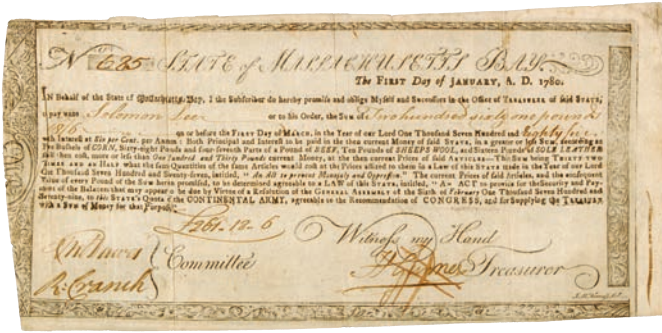 No 685 STATE of MASSACHUSETTS BAY.
The FIRST Day of JANUARY, A. D. 1780.
IN Behalf of the State of Massachusetts-Bay, I the Subscriber do hereby promise and oblige Myself and Successors in the Office of TREASURER of said STATE,
to pay unto Solomon Lee or to his Order, the SUM of Two hundred sixty one pounds
12/6 on or before the FIRST Day of MARCH, in the Year of our Lord One Thousand Seven Hundred and Eighty five
with Interest at Six per Cent. per Annum: Both Principal and Interest to be paid in the then current Money of said STATE, in a greater or less SUM, according as
Five Bushels of CORN, Sixty-eight Pounds and four-seventh Parts of a Pound of BEEF, Ten Pounds of SHEEPS WOOL, and Sixteen Pounds of SOLE LEATHER
shall then cost, more or less than One Hundred and Thirty Pounds current Money, at the then current Prices of said ARTICLES—This SUM being THIRTY-TWO
TIMES AND AN HALF what the same Quantities of the same Articles would cost at the Prices affixed to them in a LAW of this STATE made in the Year of our Lord
One Thousand Seven Hundred and Seventy-seven, intitled, "An Act to prevent Monopoly and Oppression." The current Prices of said Articles, and the consequent
Value of every Pound of the SUM herein promised, to be determined agreeable to a LAW of this STATE, intitled, "An ACT to provide for the Security and Payment
of the Balances that may appear to be due by Virtue of a Resolution of the GENERAL ASSEMBLY of the Sixth of February One Thousand Seven Hundred and
Seventy-nine, to this STATE'S Quota of the CONTINENTAL ARMY, agreeable to the Recommendation of CONGRESS, and for Supplying the TREASURY
with a SUM of Money for that Purpose."
£261-12-6
Witness my Hand
Committee
R: Cranch
Treasurer